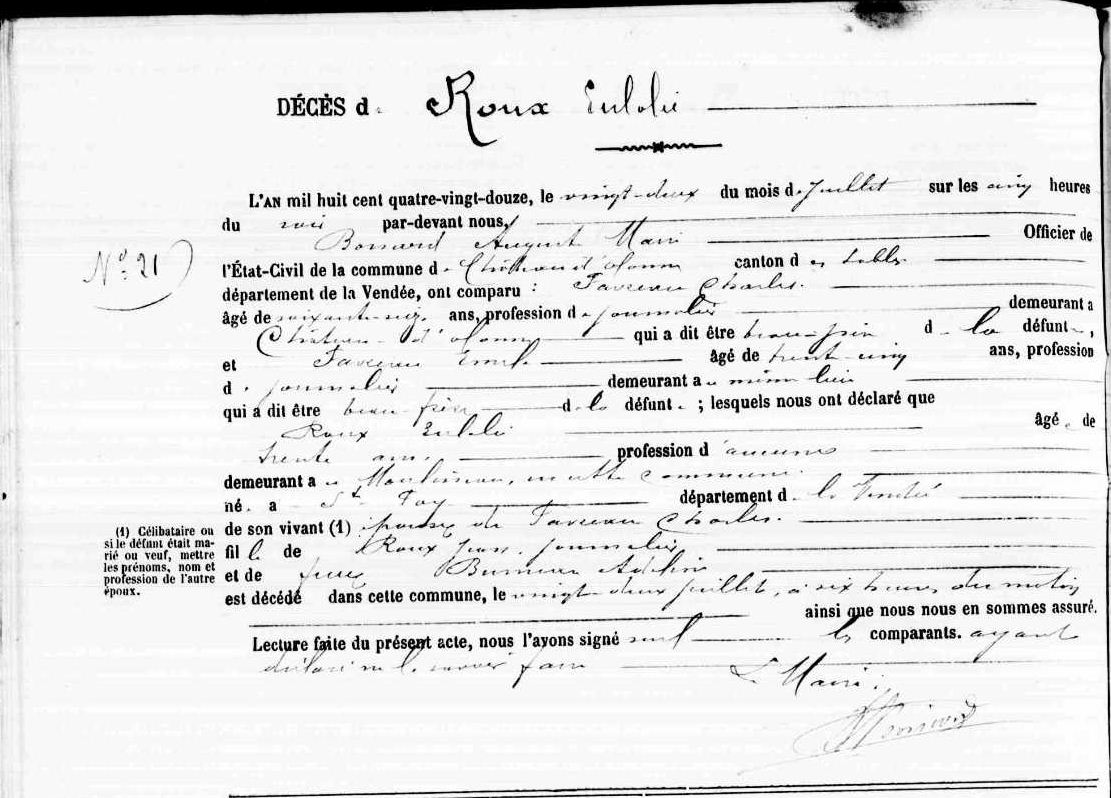 DÉCÈS de Roux Eulalie
L'AN mil huit cent quatre-vingt-douze, le vingt-deux du mois de Juillet sur les cinq heures
du soir par-devant nous,
Nº 21
Auguste Maire Officier de
l'État-Civil de la commune de Château d'olonne canton des Sables
département de la Vendée, ont comparu : Taveau Charles.
âgé de soixante-six ans, profession de journalier demeurant a
Château-d'olonne qui a dit être beau-père de la défunte,
et Taveau Emile âgé de trente-cinq ans, profession
de journalier demeurant au même lieu
qui a dit être beau-frère de la défunte ; lesquels nous ont déclaré que
Roux Eulalie âgée de
trente ans. profession d'aucune
demeurant a en cette commune.
née a Ste Foy département de la Vendée
de son vivant (1) épouse de Taveau Charles.
fille de Roux Jean, journalier
et de feue Adeline
est décédé dans cette commune, le vingt-deux juillet, à six heures du matin
ainsi que nous nous en sommes assuré.
Lecture faite du présent acte, nous l'avons signé seul les comparants. ayant
déclaré ne le savoir faire Le Maire :
(1) Célibataire ou
si le défunt était ma-
rié ou veuf, mettre
les prénoms, nom et
profession de l'autre
époux.